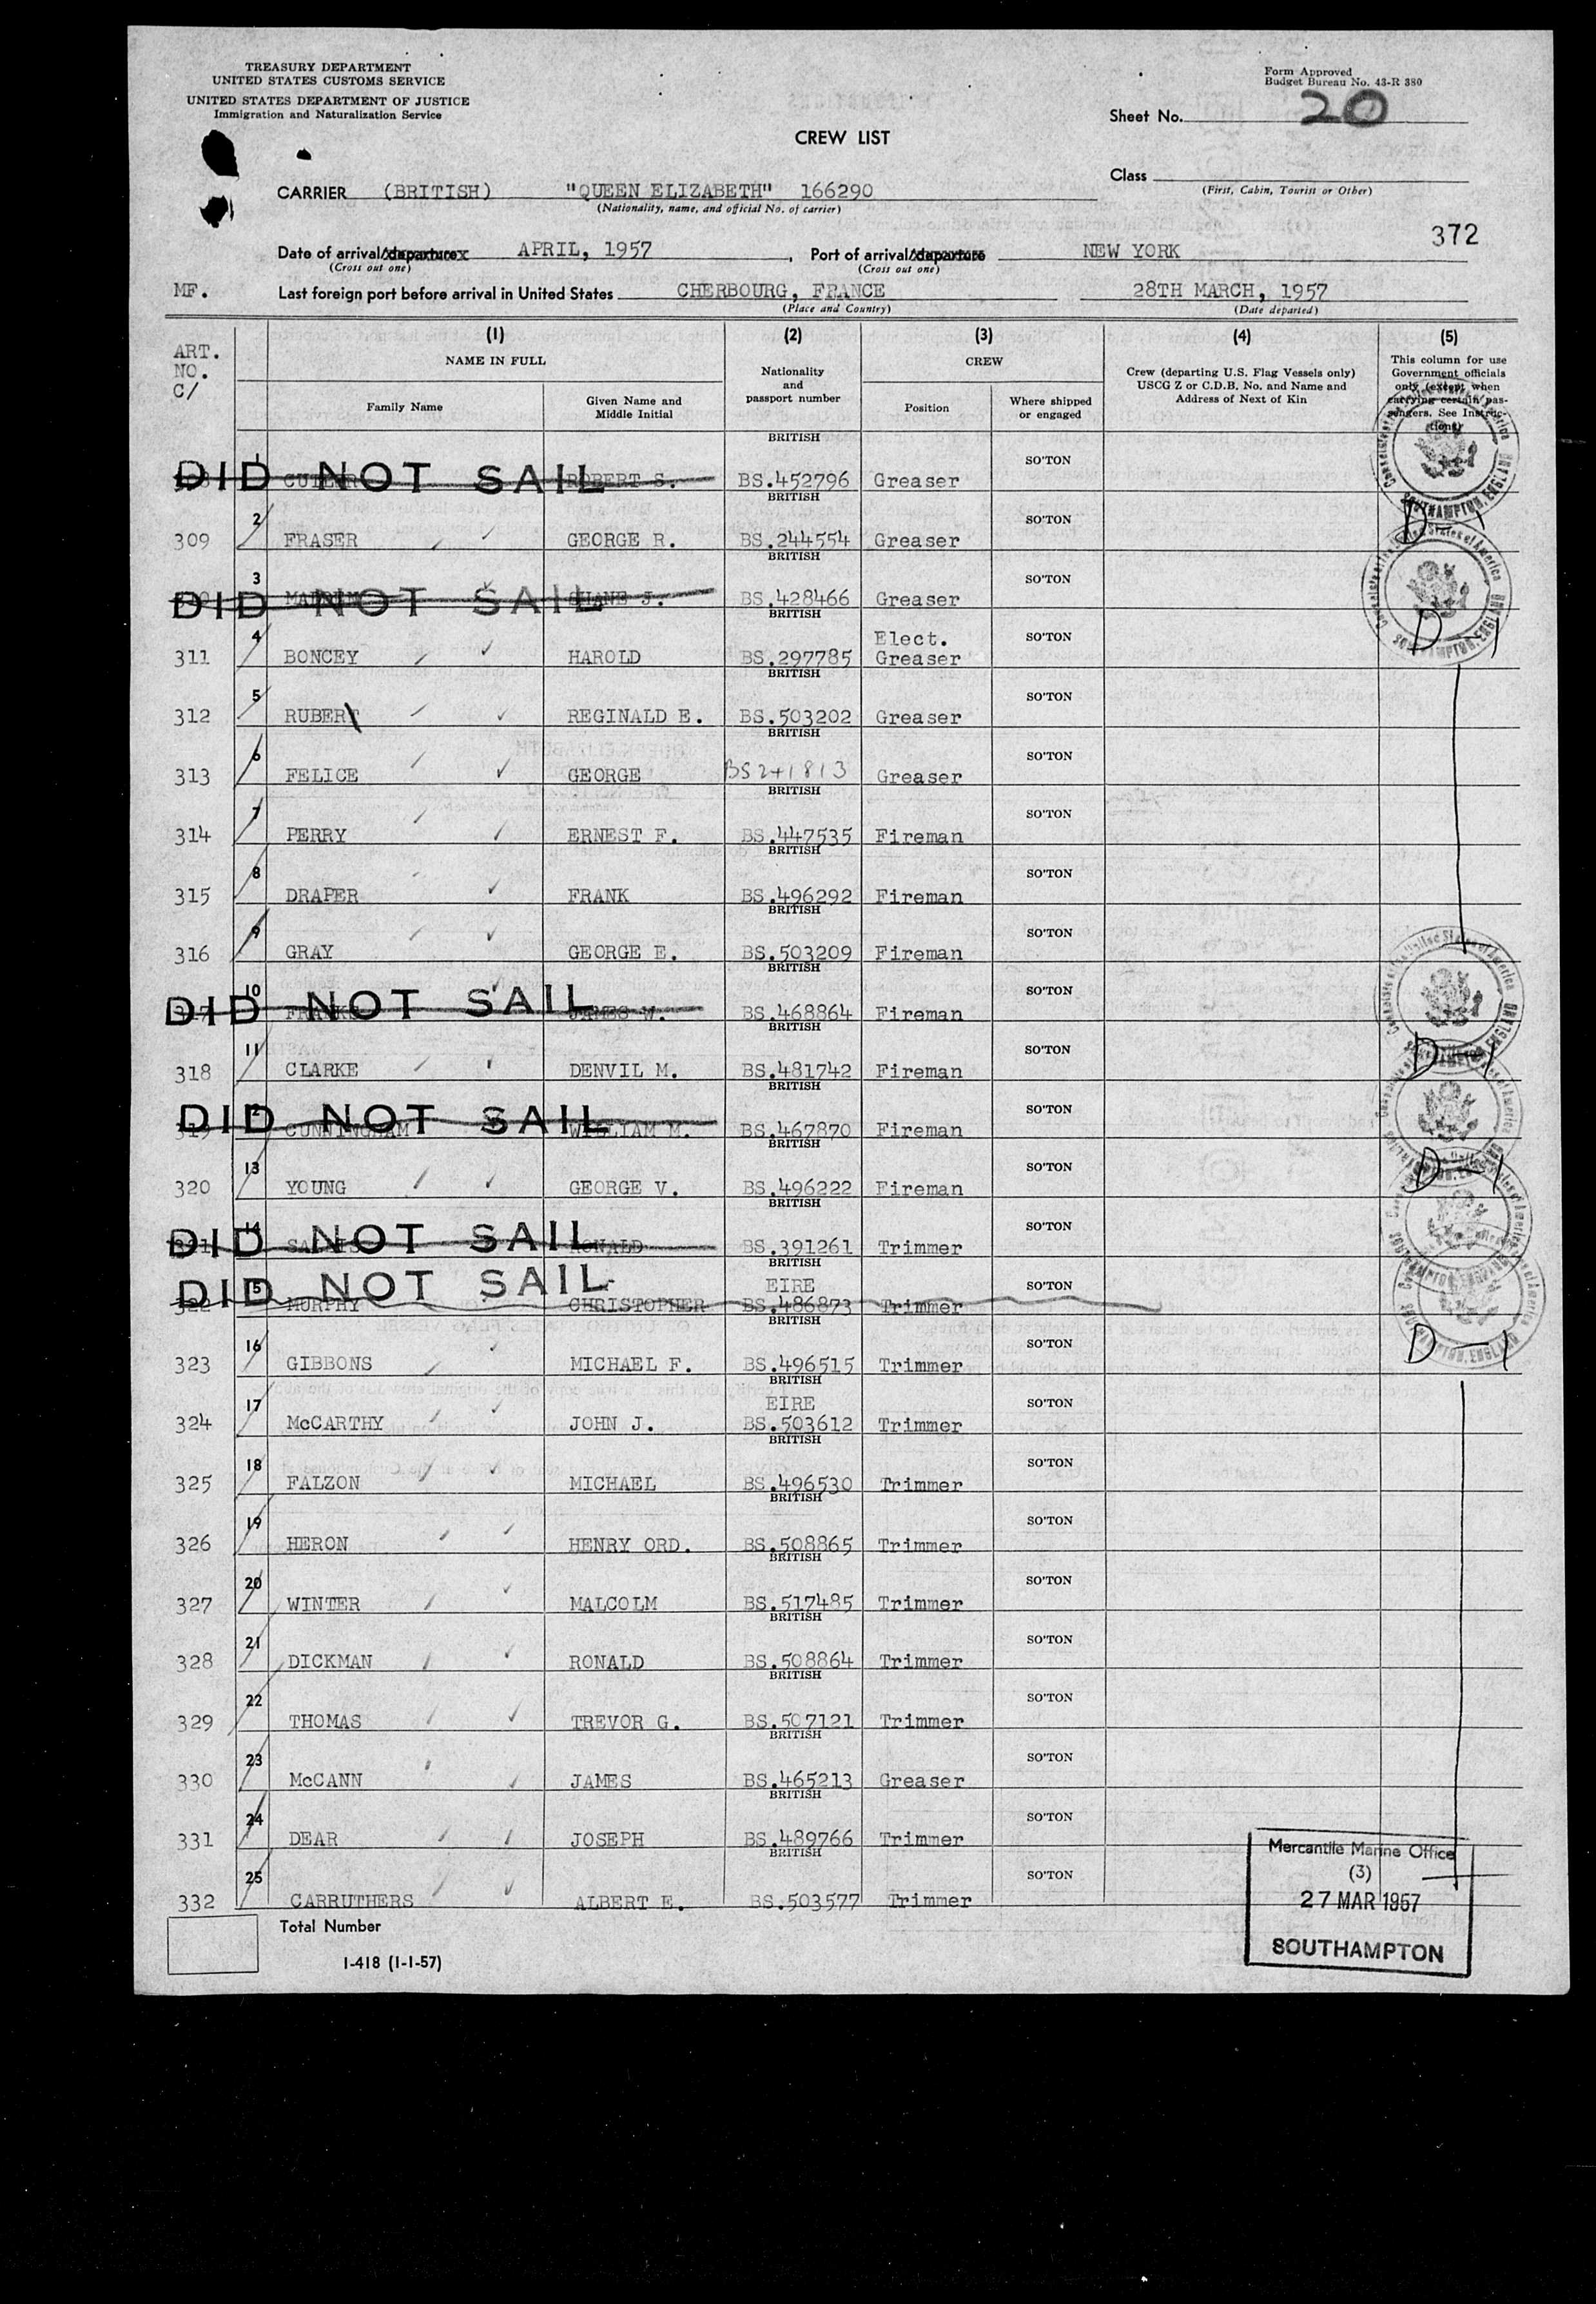 TREASURY DEPARTMENT
UNITED STATES CUSTOMS SERVICE
UNITED STATES DEPARTMENT OF JUSTICE
Immigration and Naturalization Service
Form Approved
Budget Bureau No. 43-R 380
Sheet No. 20
CREW LIST
Class
(First, Cabin, Tourist or Other)
CARRIER (BRITISH) "QUEEN ELIZABETH" 166290
(Nationality, name, and official No. of carrier)
372
Date of arrival/departure APRIL, 1957, Port of arrival/departure NEW YORK
(Cross out one) (Cross out one)
MF. Last foreign port before arrival in United States CHERBOURG, FRANCE 28TH MARCH, 1957
(Place and Country) (Date departed)
ART. NO. C/
(1) (2) (3) (4) (5)
NAME IN FULL
Family Name
Given Name and Middle Initial
Nationality and passport number
CREW
Position
Where shipped or engaged
Crew (departing U.S. Flag Vessels only) USCG Z or C.D.B. No. and Name and Address of Next of Kin
This column for use Government officials only (except when carrying certain passengers. See Instructions)
DID NOT SAIL ROBERT S. BRITISH BS.452796 Greaser SO'TON
309 2 FRASER GEORGE R. BRITISH BS.244554 Greaser SO'TON D-1
DID NOT SAIL 3 J. BRITISH BS.428466 Greaser SO'TON
311 4 BONCEY HAROLD BRITISH BS.297785 Elect. Greaser SO'TON D-1
312 5 RUBERT REGINALD E. BRITISH BS.503202 Greaser SO'TON
313 6 FELICE GEORGE BRITISH BS241813 Greaser SO'TON
314 7 PERRY ERNEST F. BRITISH BS.447535 Fireman SO'TON
315 8 DRAPER FRANK BRITISH BS.496292 Fireman SO'TON
316 9 GRAY GEORGE E. BRITISH BS.503209 Fireman SO'TON
DID NOT SAIL 10 JAMES W. BRITISH BS.468864 Fireman SO'TON
318 11 CLARKE DENVIL M. BRITISH BS.481742 Fireman SO'TON D-1
DID NOT SAIL 319 CUNNINGHAM WILLIAM M. BRITISH BS.467870 Fireman SO'TON
320 13 YOUNG GEORGE V. BRITISH BS.496222 Fireman SO'TON D-1
DID NOT SAIL 14 RONALD BRITISH BS.391261 Trimmer SO'TON
DID NOT SAIL 322 15 MURPHY CHRISTOPHER BRITISH EIRE BS.486873 Trimmer SO'TON
323 16 GIBBONS MICHAEL F. BRITISH BS.496515 Trimmer SO'TON D-1
324 17 McCARTHY JOHN J. BRITISH EIRE BS.503612 Trimmer SO'TON
325 18 FALZON MICHAEL BRITISH BS.496530 Trimmer SO'TON
326 19 HERON HENRY ORD. BRITISH BS.508865 Trimmer SO'TON
327 20 WINTER MALCOLM BRITISH BS.517485 Trimmer SO'TON
328 21 DICKMAN RONALD BRITISH BS.508864 Trimmer SO'TON
329 22 THOMAS TREVOR G. BRITISH BS.507121 Trimmer SO'TON
330 23 McCANN JAMES BRITISH BS.465213 Greaser SO'TON
331 24 DEAR JOSEPH BRITISH BS.489766 Trimmer SO'TON
332 25 CARRUTHERS ALBERT E. BRITISH BS.503577 Trimmer SO'TON
Total Number
I-418 (1-1-57)
Mercantile Marine Office
(3)
27 MAR 1957
SOUTHAMPTON